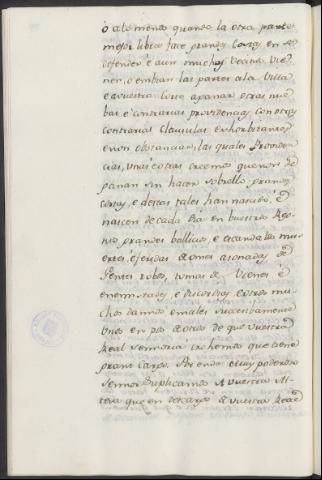 ó alo menos quando la otra parte
mejor libra face grandes costas en se
defender é aun muchas vecinos vie
nen, o embian las partes ala Villa
e avuestra Corte aganar otras nue
bas, é contrarias providencias, con otras
contrarias clausulas exhorbitantes
e non obstancias, las quales Providen
cias, unas e otras creemos que non se
ganan sin hacer sobrello grandes
costas, e destas tales han nascido, é
nascen de cada dia en buestros Reg
nos, grandes bollicios, e escandalos mu
ertes, é feridas de omes asonadas de
Gentes robos, tomas de Vienes é
enemistades, e discordias e otros mu
chos dannos, e males succesivamente
unos en pos de otros de que vuestra
Real Sennoria, crehemos que tiene
grant cargo. Por ende muy poderoso
Sennor Suplicamos A vuestra Al
teza que en descargo de vuestra Real